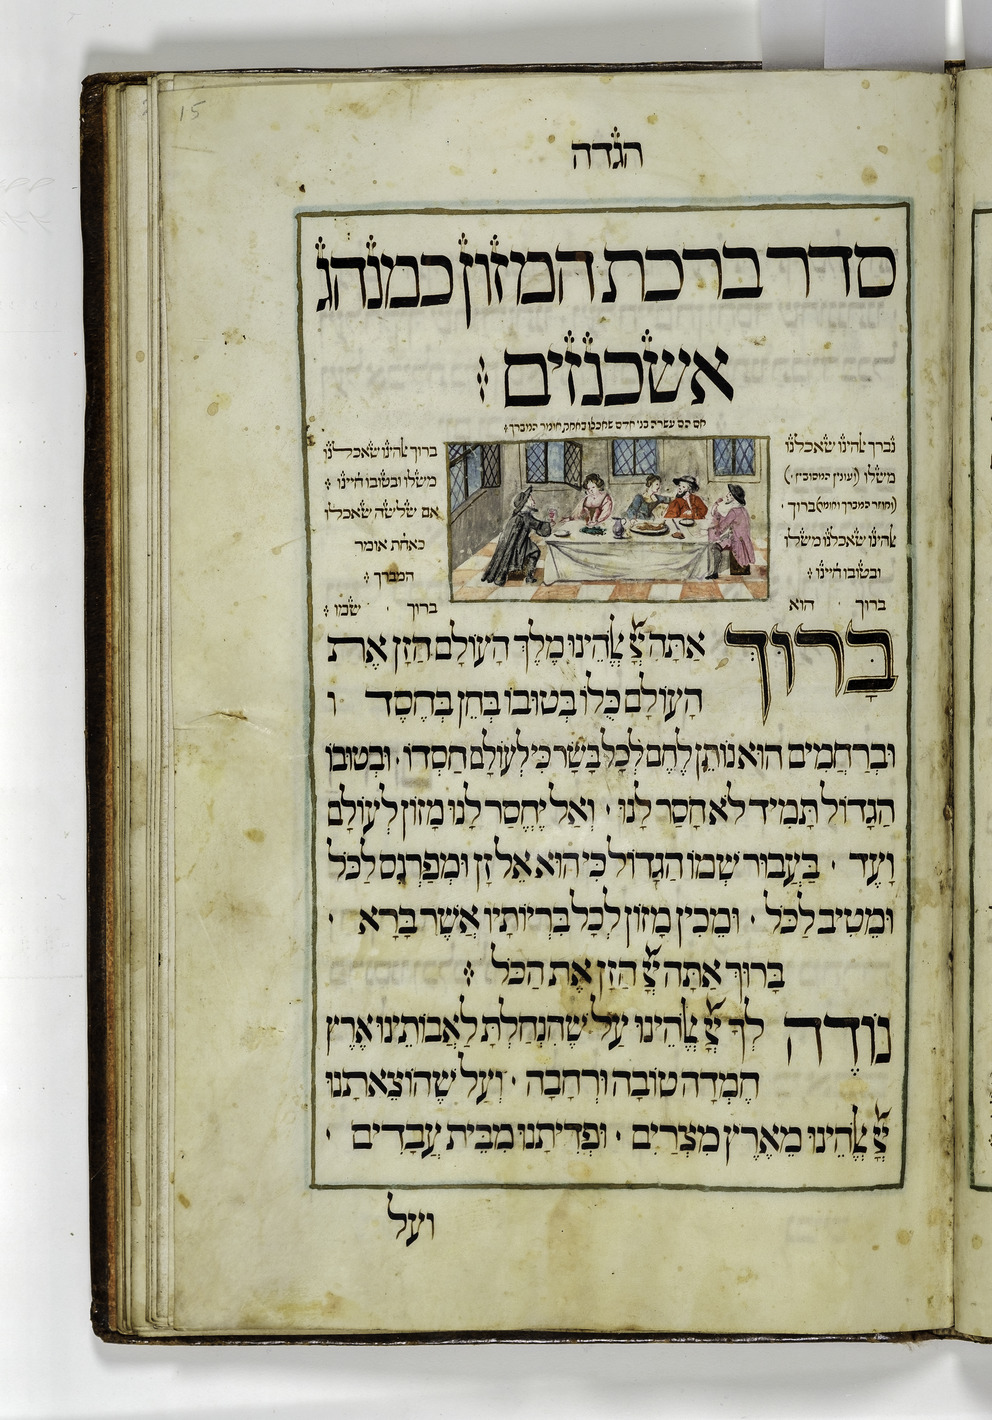 15
הגדה
סדר ברכת המזון כמנהג
אשכנזים :
אם הם עשרה בני אדם שאכלו באחת, אומר המברך :
נברך אלהינו שאכלנו
משלו (ועונין המסובין)
(וחוזר המברך ואומר) ברוך
אלהינו שאכלנו משלו
ובטובו חיינו :
ברוך הוא
ברוך אלהינו שאכלנו
משלו ובטובו חיינו :
אם שלשה שאכלו
כאחת אומר
המברך :
ברוך שמו :
בָּרוּךְ אַתָּה יְיָ אֱלֹהֵינוּ מֶלֶךְ הָעוֹלָם הַזָּן אֶת
הָעוֹלָם כֻּלּוֹ בְּטוּבוֹ בְּחֵן בְּחֶסֶד ו
וּבְרַחֲמִים הוּא נוֹתֵן לֶחֶם לְכָל בָּשָׂר כִּי לְעוֹלָם חַסְדּוֹ · וּבְטוּבוֹ
הַגָּדוֹל תָּמִיד לֹא חָסַר לָנוּ · וְאַל יֶחְסַר לָנוּ מָזוֹן לְעוֹלָם
וָעֶד · בַּעֲבוּר שְׁמוֹ הַגָּדוֹל כִּי הוּא אֵל זָן וּמְפַרְנֵס לַכֹּל
וּמֵטִיב לַכֹּל · וּמֵכִין מָזוֹן לְכָל בְּרִיּוֹתָיו אֲשֶׁר בָּרָא ·
בָּרוּךְ אַתָּה יְיָ הַזָּן אֶת הַכֹּל :
נוֹדֶה לְךָ יְיָ אֱלֹהֵינוּ עַל שֶׁהִנְחַלְתָּ לַאֲבוֹתֵינוּ אֶרֶץ
חֶמְדָּה טוֹבָה וּרְחָבָה · וְעַל שֶׁהוֹצֵאתָנוּ
יְיָ אֱלֹהֵינוּ מֵאֶרֶץ מִצְרַיִם · וּפְדִיתָנוּ מִבֵּית עֲבָדִים ·
ועל